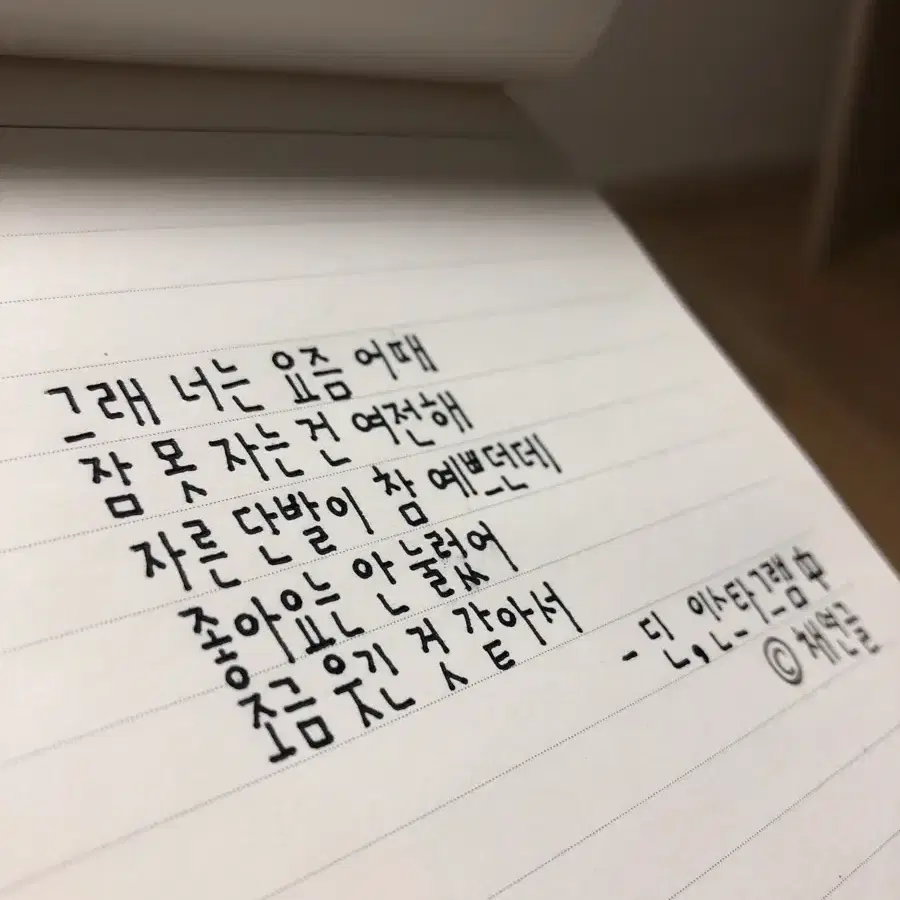 그래 너는 요즘 어때
잠 못 자는건 여전해
자른 단발이 참 예쁘던데
좋아요는 안 눌렀어
조금 웃긴 것 같아서
- 딘, 인스타그램 中
© 채연글